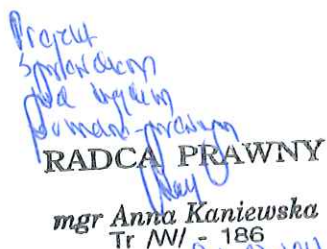 Projekt
sprawdzony
pod względem
formalno-prawnym
RADCA PRAWNY
mgr Anna Kaniewska
Tr /W/ - 186